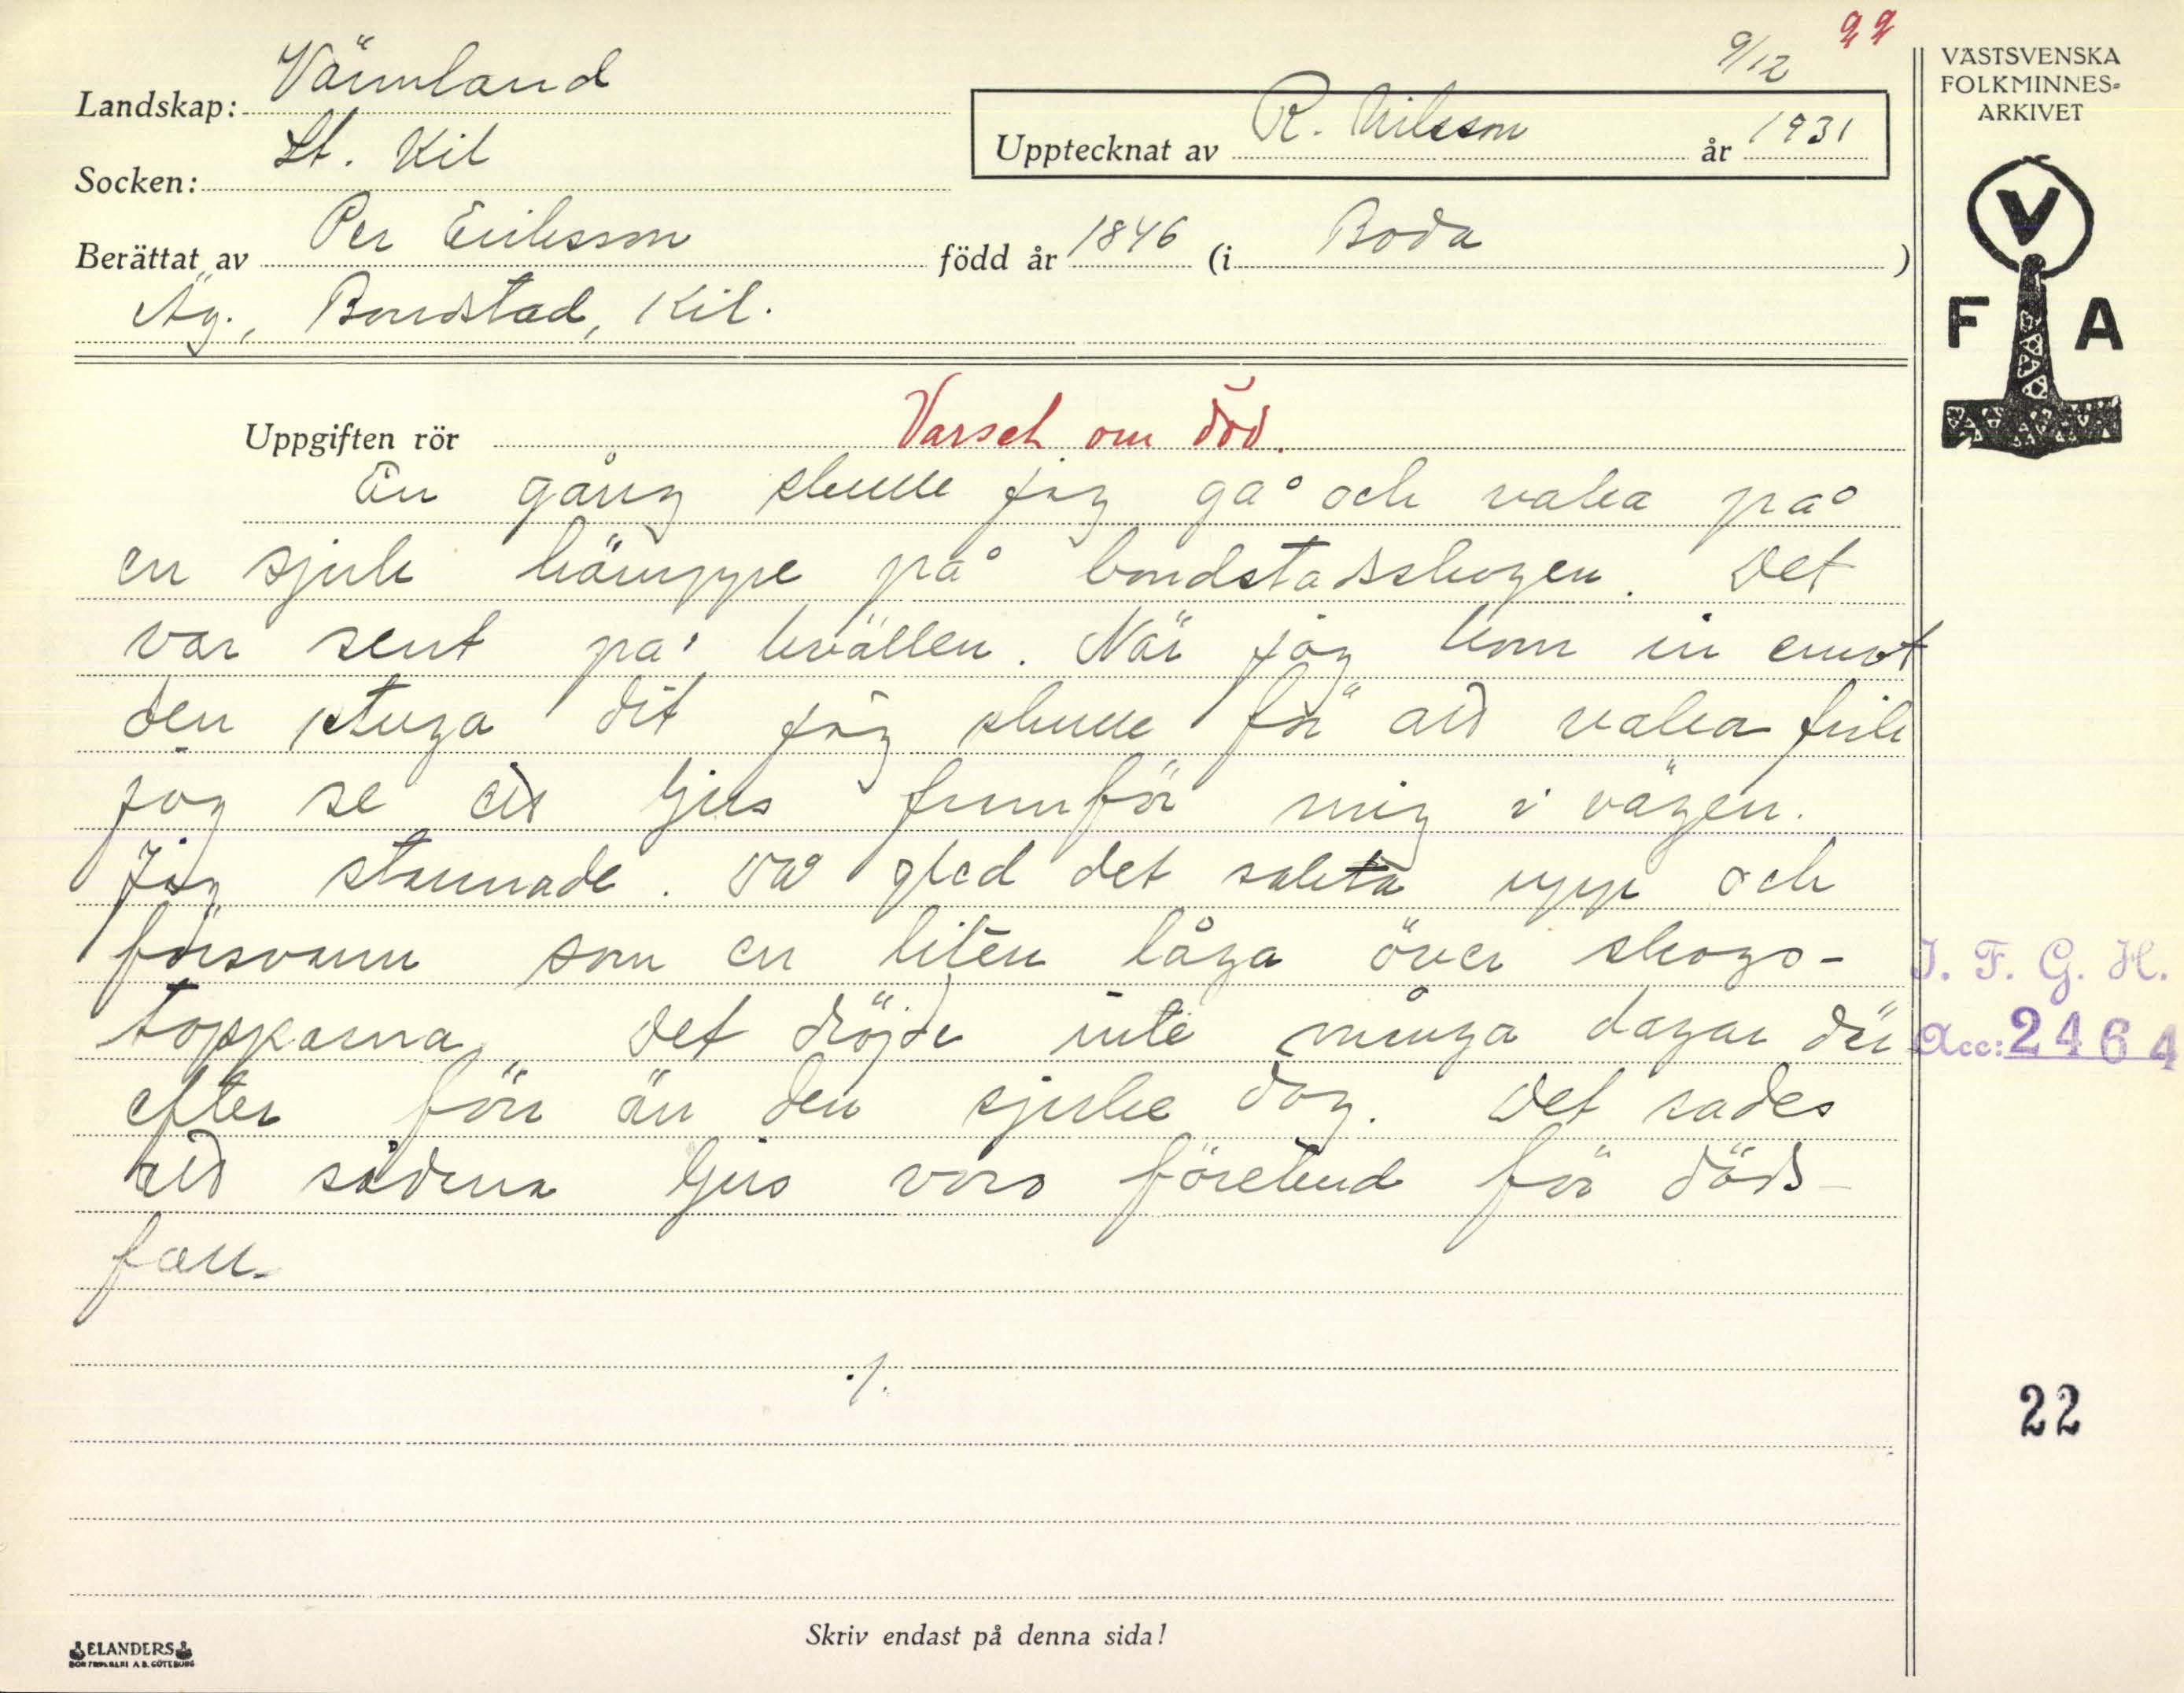 9/12 22
Landskap: Värmland
Socken: St. Kil
Upptecknat av R. Nilsson år 1931
Berättat av Per Eriksson född år 1846 (i Boda)
Äg., Bondstad, Kil.
VÄSTSVENSKA
FOLKMINNES-
ARKIVET
V
F A
Uppgiften rör Varsel om död.
En gång skulle jag gå och vaka på
en sjuk kämppe på bondstadsskogen. Det
var sent på kvällen. När jag kom in emot
den stuga dit jag skulle för att vaka fick
jag se ett ljus framför mig i vägen.
Jag stannade. Då gled det sakta upp och
försvann som en liten låga över skogs-
topparna. Det dröjde inte många dagar där
efter förr än den sjuke dog. Det sades
att sådana ljus voro förebud för döds-
fall.
./.
I. F. G. H.
Acc: 2464
22
Skriv endast på denna sida!
ELANDERS
BOKTRYCKERI A.B. GÖTEBORG